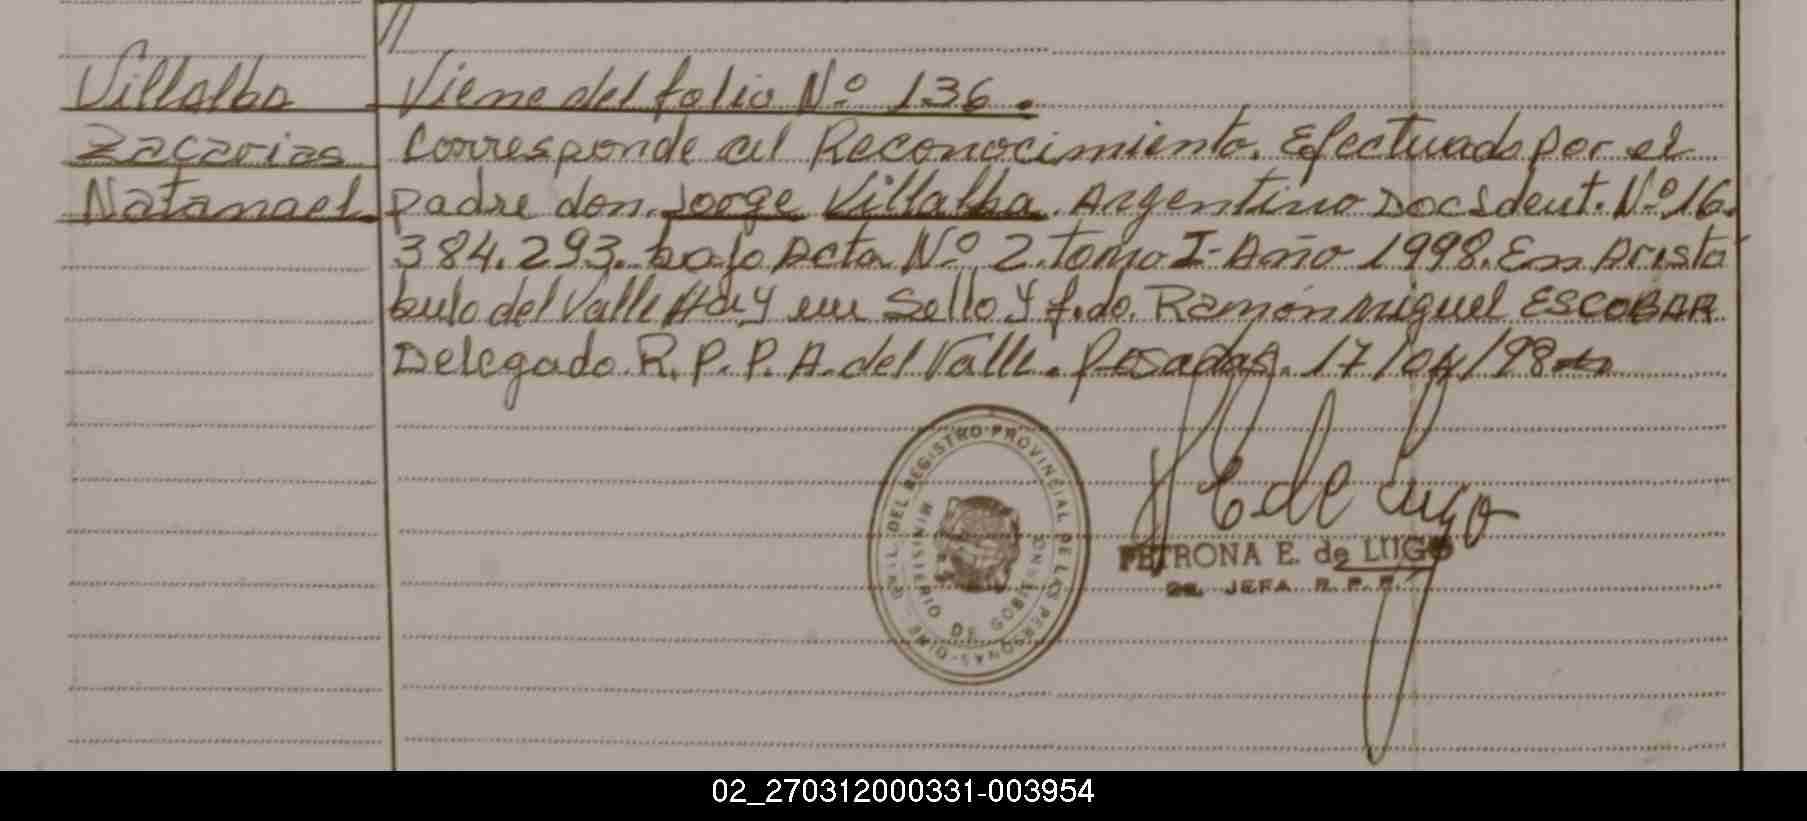 //
Villalba
Zacarias
Natanael
Viene del folio Nº 136.
Corresponde al Reconocimiento. Efectuado por el
padre don. Jorge Villalba. Argentino DocIdent. Nº 16.
384.293. bajo Acta Nº 2. tomo I- Año 1998. En Aristo
bulo del Valle Hay un Sello y f.do. Ramón Miguel ESCOBAR
Delegado. R. P. P. A. del Valle. Posadas. 17/04/98
E de Lugo
DEL REGISTRO PROVINCIAL DE LAS PERSONAS
MINISTERIO DE GOBIERNO
PETRONA E. de LUGO
JEFA R. P. P.
02_270312000331-003954